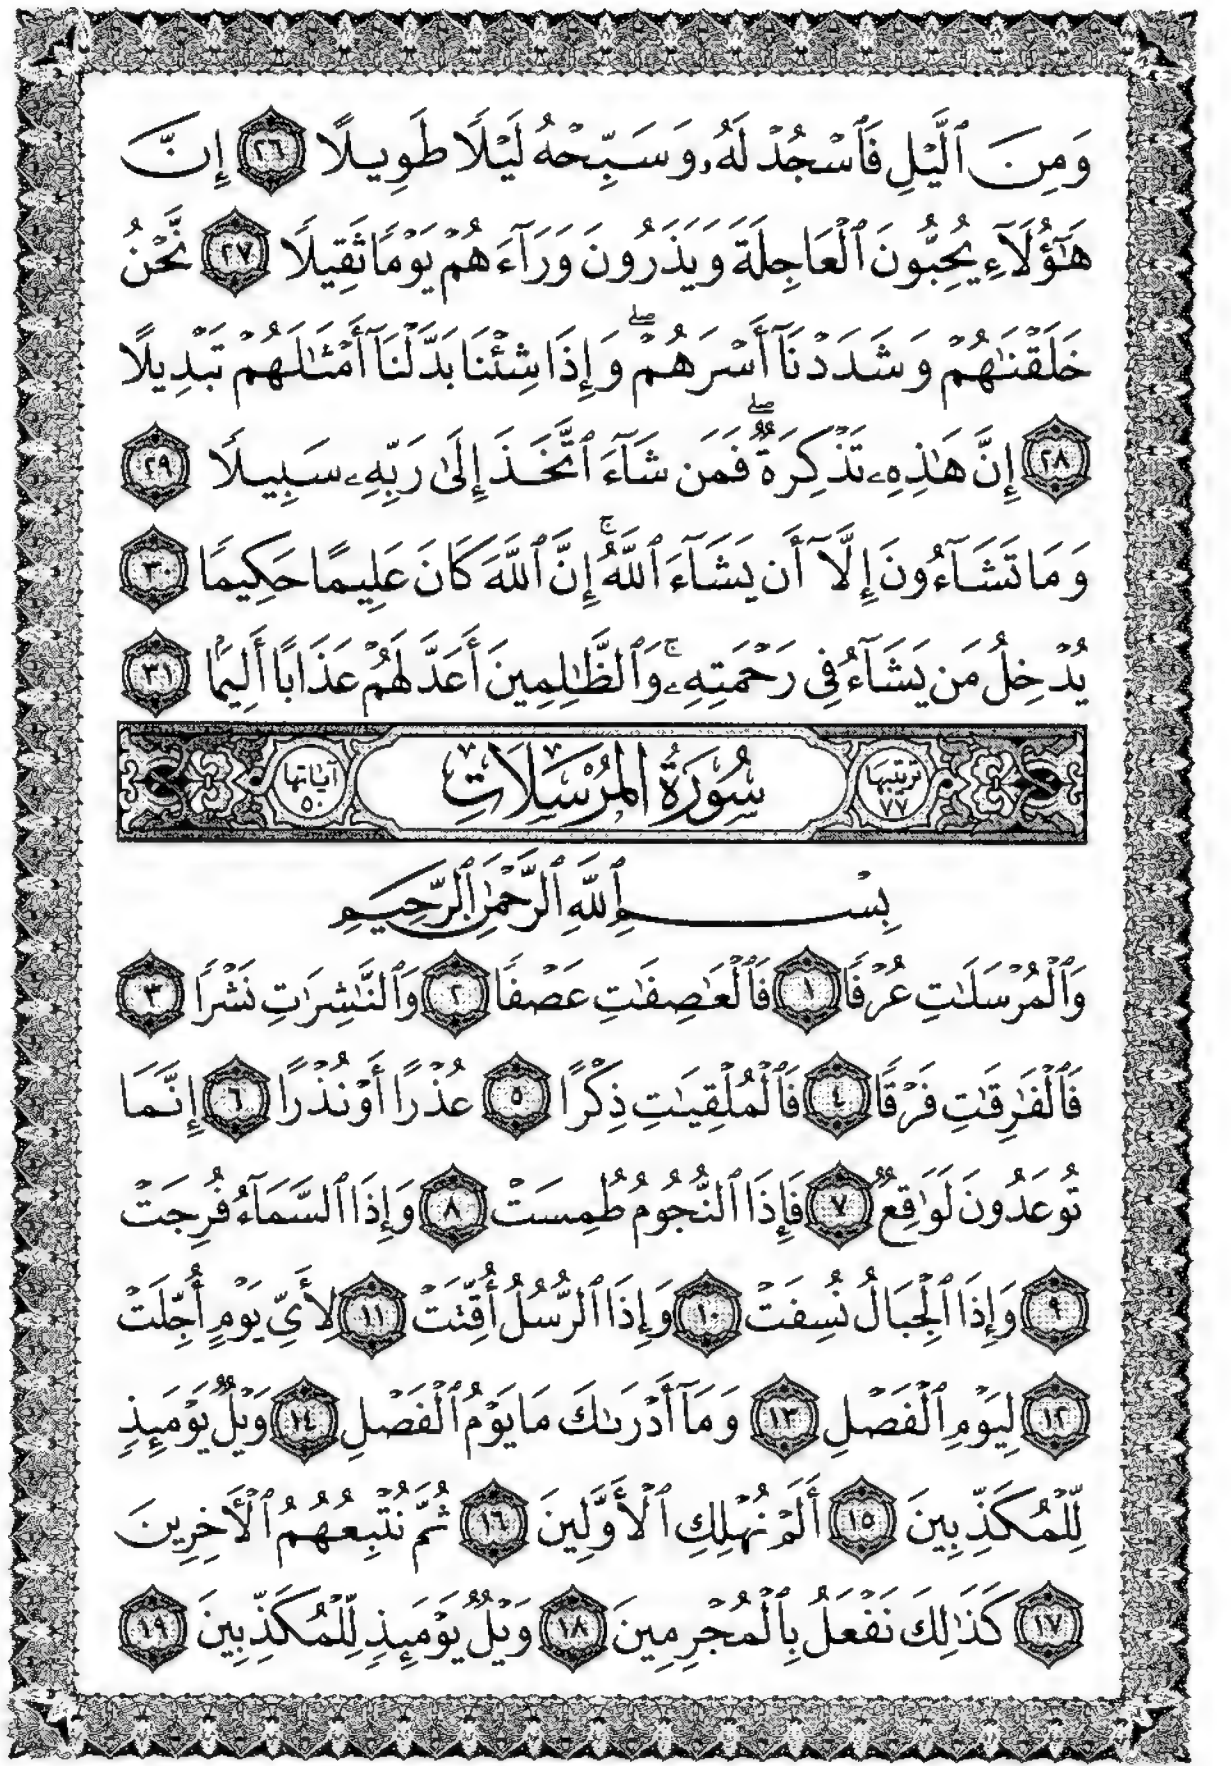 وَمِنَ ٱلَّيْلِ فَٱسْجُدْ لَهُۥ وَسَبِّحْهُ لَيْلًا طَوِيلًا ٢٦ إِنَّ
هَٰٓؤُلَآءِ يُحِبُّونَ ٱلْعَاجِلَةَ وَيَذَرُونَ وَرَآءَهُمْ يَوْمًا ثَقِيلًا ٢٧ نَّحْنُ
خَلَقْنَٰهُمْ وَشَدَدْنَآ أَسْرَهُمْ ۖ وَإِذَا شِئْنَا بَدَّلْنَآ أَمْثَٰلَهُمْ تَبْدِيلًا
٢٨ إِنَّ هَٰذِهِۦ تَذْكِرَةٌ ۖ فَمَن شَآءَ ٱتَّخَذَ إِلَىٰ رَبِّهِۦ سَبِيلًا ٢٩
وَمَا تَشَآءُونَ إِلَّآ أَن يَشَآءَ ٱللَّهُ ۚ إِنَّ ٱللَّهَ كَانَ عَلِيمًا حَكِيمًا ٣٠
يُدْخِلُ مَن يَشَآءُ فِى رَحْمَتِهِۦ ۚ وَٱلظَّٰلِمِينَ أَعَدَّ لَهُمْ عَذَابًا أَلِيمًۢا ٣١
ترتيبها ٧٧ سُورَةُ المُرْسَلَاتِ آياتها ٥٠
بِسْمِ ٱللَّهِ ٱلرَّحْمَٰنِ ٱلرَّحِيمِ
وَٱلْمُرْسَلَٰتِ عُرْفًا ١ فَٱلْعَٰصِفَٰتِ عَصْفًا ٢ وَٱلنَّٰشِرَٰتِ نَشْرًا ٣
فَٱلْفَٰرِقَٰتِ فَرْقًا ٤ فَٱلْمُلْقِيَٰتِ ذِكْرًا ٥ عُذْرًا أَوْ نُذْرًا ٦ إِنَّمَا
تُوعَدُونَ لَوَٰقِعٌ ٧ فَإِذَا ٱلنُّجُومُ طُمِسَتْ ٨ وَإِذَا ٱلسَّمَآءُ فُرِجَتْ
٩ وَإِذَا ٱلْجِبَالُ نُسِفَتْ ١٠ وَإِذَا ٱلرُّسُلُ أُقِّتَتْ ١١ لِأَىِّ يَوْمٍ أُجِّلَتْ
١٢ لِيَوْمِ ٱلْفَصْلِ ١٣ وَمَآ أَدْرَىٰكَ مَا يَوْمُ ٱلْفَصْلِ ١٤ وَيْلٌ يَوْمَئِذٍ
لِّلْمُكَذِّبِينَ ١٥ أَلَمْ نُهْلِكِ ٱلْأَوَّلِينَ ١٦ ثُمَّ نُتْبِعُهُمُ ٱلْءَاخِرِينَ
١٧ كَذَٰلِكَ نَفْعَلُ بِٱلْمُجْرِمِينَ ١٨ وَيْلٌ يَوْمَئِذٍ لِّلْمُكَذِّبِينَ ١٩